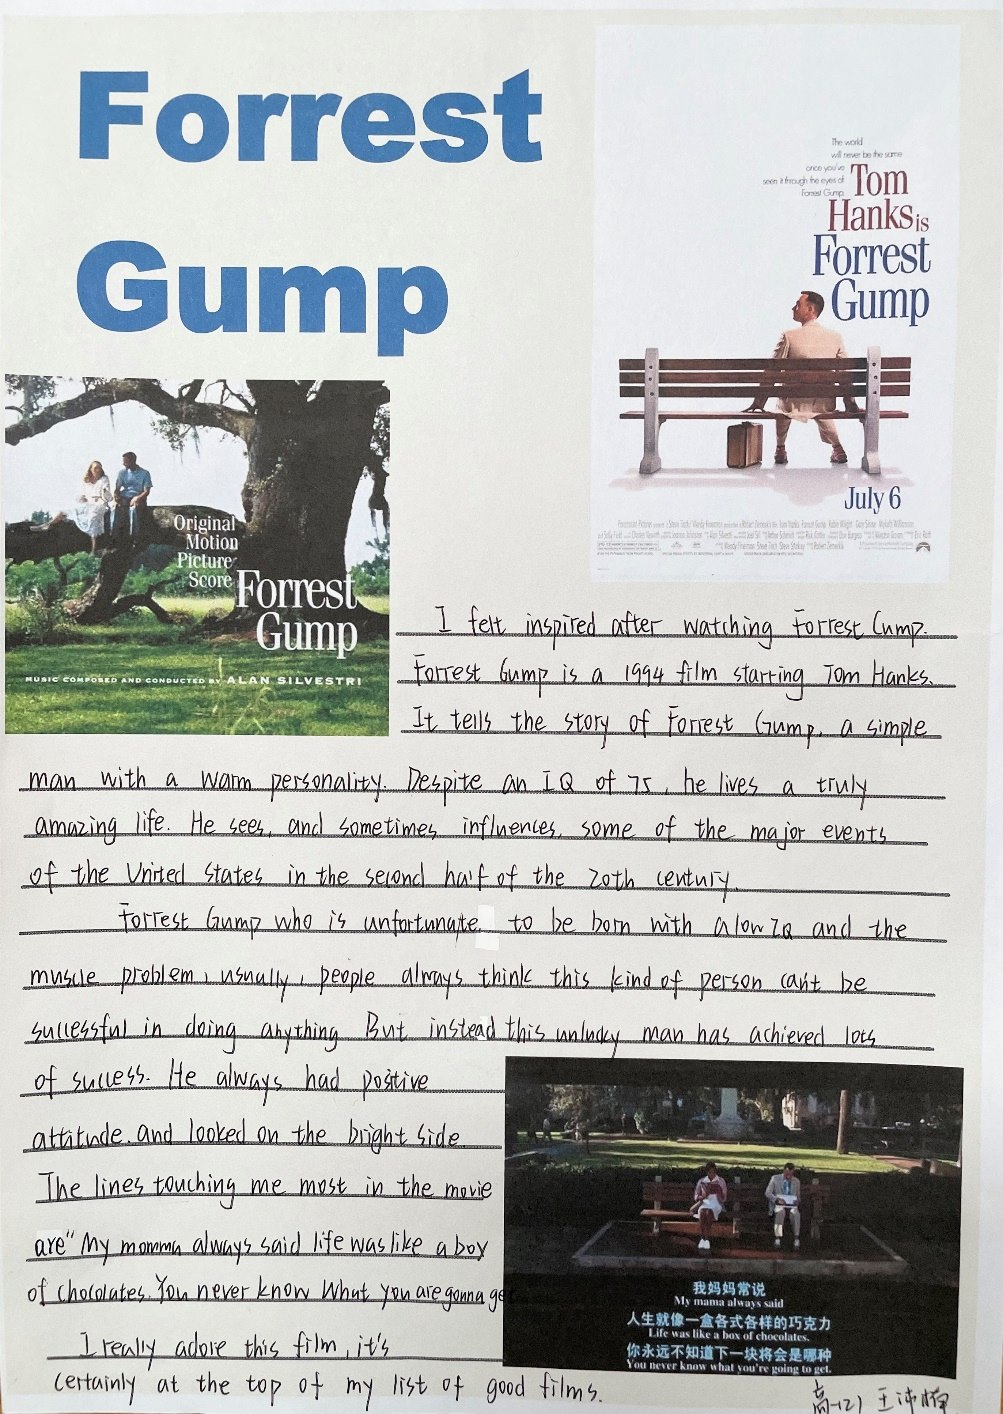 Forrest
Gump
The world
will never be the same
once you've
seen it through the eyes of
Forrest Gump.
Tom
Hanks is
Forrest
Gump
July 6
Original
Motion
Picture
Score
Forrest
Gump
MUSIC COMPOSED AND CONDUCTED BY ALAN SILVESTRI
I felt inspired after watching Forrest Gump.
Forrest Gump is a 1994 film starring Tom Hanks.
It tells the story of Forrest Gump, a simple
man with a warm personality. Despite an IQ of 75, he lives a truly
amazing life. He sees, and sometimes influences, some of the major events
of the United States in the second half of the 20th century.
Forrest Gump who is unfortunate to be born with a low IQ and the
muscle problem, usually, people always think this kind of person can't be
successful in doing anything But instead this unlucky man has achieved lots
of success. He always had positive
attitude and looked on the bright side.
The lines touching me most in the movie
are "My momma always said life was like a box
of chocolates. You never know What you are gonna get
I really adore this film, it's
certainly at the top of my list of good films.
我妈妈常说
My mama always said
人生就像一盒各式各样的巧克力
Life was like a box of chocolates.
你永远不知道下一块将会是哪种
You never know what you're going to get.
高一(2) 王沛